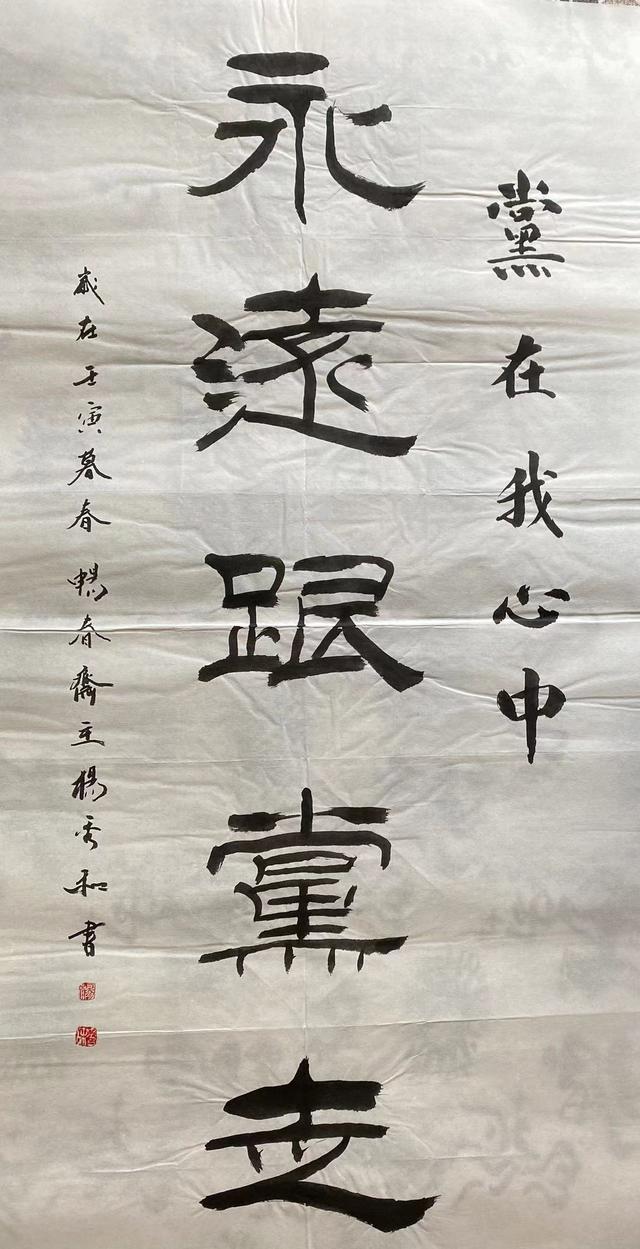 黨在我心中
永遠跟黨走
歲在壬寅暮春暢春齋主楊秀和書